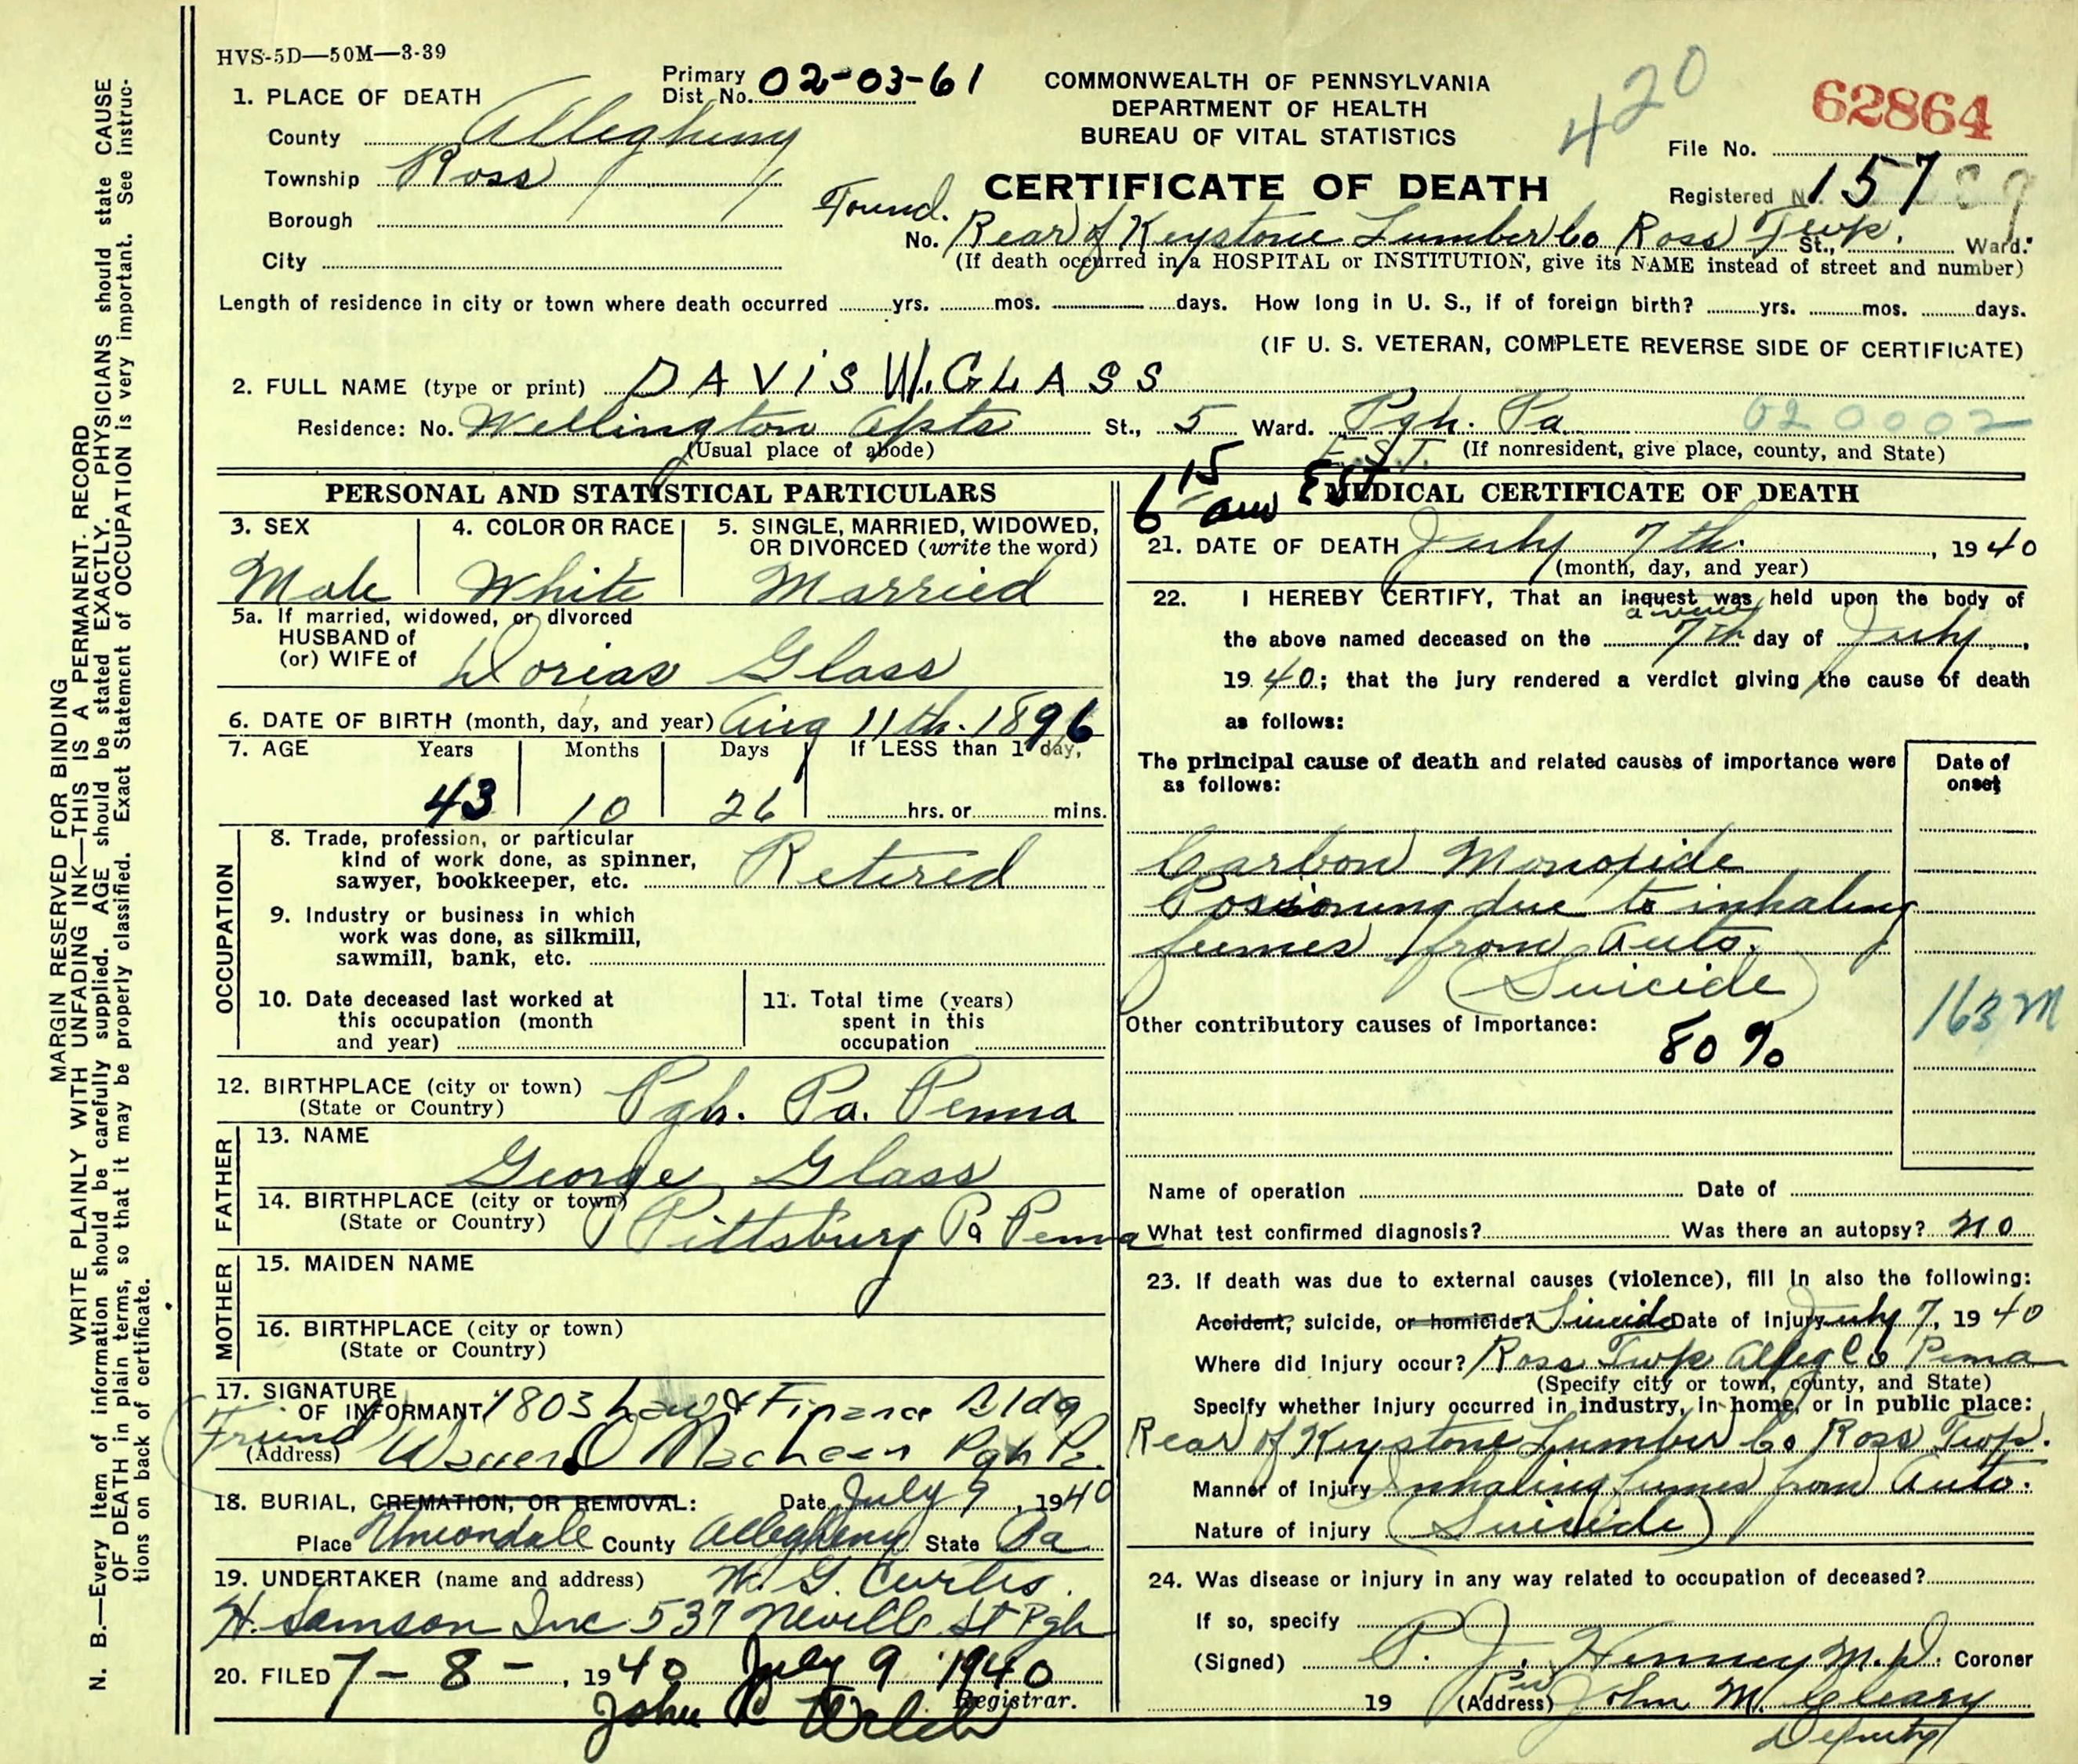 HVS-5D—50M—3-39
Primary Dist No. 02-03-61
COMMONWEALTH OF PENNSYLVANIA
DEPARTMENT OF HEALTH
BUREAU OF VITAL STATISTICS
420
62864
File No.
CERTIFICATE OF DEATH
Registered N. 157
1. PLACE OF DEATH
County Allegheny
Township Ross
Borough
City
Found.
No. Rear of Keystone Lumber Co Ross Twp. St., Ward.
(If death occurred in a HOSPITAL or INSTITUTION, give its NAME instead of street and number)
Length of residence in city or town where death occurred yrs. mos. days. How long in U. S., if of foreign birth? yrs. mos. days.
(IF U. S. VETERAN, COMPLETE REVERSE SIDE OF CERTIFICATE)
2. FULL NAME (type or print) DAViS W. GLASS
Residence: No. Wellington Apts St., 5 Ward. Pgh. Pa 020002
(Usual place of abode) E.S.T. (If nonresident, give place, county, and State)
PERSONAL AND STATISTICAL PARTICULARS
3. SEX 4. COLOR OR RACE 5. SINGLE, MARRIED, WIDOWED, OR DIVORCED (write the word)
Male White Married
5a. If married, widowed, or divorced
HUSBAND of
(or) WIFE of Dorias Glass
6. DATE OF BIRTH (month, day, and year) Aug 11th. 1896
7. AGE Years Months Days If LESS than 1 day,
43 10 26 hrs. or mins.
OCCUPATION
8. Trade, profession, or particular
kind of work done, as spinner,
sawyer, bookkeeper, etc. Retired
9. Industry or business in which
work was done, as silkmill,
sawmill, bank, etc.
10. Date deceased last worked at
this occupation (month
and year)
11. Total time (years)
spent in this
occupation
12. BIRTHPLACE (city or town) Pgh. Pa. Penna
(State or Country)
FATHER
13. NAME
George Glass
14. BIRTHPLACE (city or town) Pittsburg Pa Penna
(State or Country)
MOTHER
15. MAIDEN NAME
16. BIRTHPLACE (city or town)
(State or Country)
17. SIGNATURE
OF INFORMANT 1803 Law & Finance Bldg
Friend
(Address) Pgh Pa.
18. BURIAL, CREMATION, OR REMOVAL: Date July 9, 1940
Place Uniondale County Allegheny State Pa
19. UNDERTAKER (name and address) W. G. Curtis.
H. Samson Inc 537 Neville St Pgh
20. FILED 7-8-, 1940 July 9 1940
Registrar.
John Welch
6 15 am EST
MEDICAL CERTIFICATE OF DEATH
21. DATE OF DEATH July 7th., 1940
(month, day, and year)
22. I HEREBY CERTIFY, That an inquest was held upon the body of
a view
the above named deceased on the 7th day of July,
1940; that the jury rendered a verdict giving the cause of death
as follows:
The principal cause of death and related causes of importance were
as follows:
Date of
onset
Carbon Monoxide
Posioning due to inhaling
fumes from Auto.
(Suicide)
163 M
Other contributory causes of importance:
80%
Name of operation Date of
What test confirmed diagnosis? Was there an autopsy? no
23. If death was due to external causes (violence), fill in also the following:
Accident, suicide, or homicide? Suicide Date of injury July 7, 1940
Where did injury occur? Ross Twp Alleg Co Penna
(Specify city or town, county, and State)
Specify whether injury occurred in industry, in home, or in public place:
Rear of Keystone Lumber Co Ross Twp.
Manner of injury Inhaling fumes from Auto.
Nature of injury (Suicide)
24. Was disease or injury in any way related to occupation of deceased?
If so, specify
(Signed) P. J. Henney M.D. Coroner
19 (Address) Per John M. Cleary
Deputy
MARGIN RESERVED FOR BINDING
WRITE PLAINLY WITH UNFADING INK—THIS IS A PERMANENT RECORD
N. B.—Every item of information should be carefully supplied. AGE should be stated EXACTLY. PHYSICIANS should state CAUSE
OF DEATH in plain terms, so that it may be properly classified. Exact Statement of OCCUPATION is very important. See instruc-
tions on back of certificate.